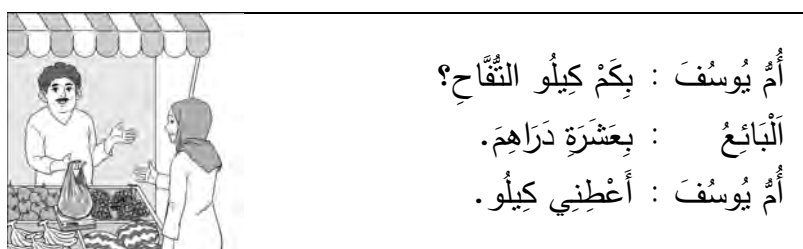 أُمُّ يُوسُفَ : بِكَمْ كِيلُو التُّفَّاحِ؟
اَلْبَائِعُ : بِعَشَرَةِ دَرَاهِمَ.
أُمُّ يُوسُفَ : أَعْطِنِي كِيلُو.